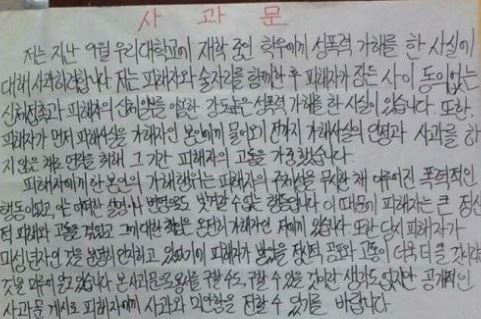 사 과 문
저는 지난 9월 우리대학교에 재학 중인 학우에게 성폭력 가해를 한 사실에
대해 사과하려합니다. 저는 피해자와 술자리를 함께한 후 피해자가 잠든 사이 동의없는
신체접촉과 피해자의 신체일부를 강도높은 성폭력 가해를 한 사실이 있습니다. 또한,
피해자가 먼저 피해사실을 가해자인 본인에게 물어보기 전까지 가해사실의 인정과 사과를 하
지 않은 채로 연락을 취해 그 기간 피해자의 고통을 가중했습니다.
피해자에게 한 본인의 가해행위는 피해자의 주체성을 무시한 채 이루어진 폭력적인
행동이었고, 어떠한 설명이나 변명으로도 행동입니다. 이 때문에 피해자는 큰 정신
적 피해와 고통을 겪었고 그에 대한 책임은 온전히 가해자인 저에게 있습니다. 또한 당시 피해자가
미성년자인 것을 분명히 인지하고 있었기에 피해자가 받았을 정신적 공포와 고통이 더욱 더 클 것이라는
것을 알고 있습니다. 본 사과문으로 용서를 구할 수도, 구할 수 있을 것이란 생각도 없지만 공개적인
사과문 게시로 피해자에게 사과와 미안함을 전할 수 있기를 바랍니다.